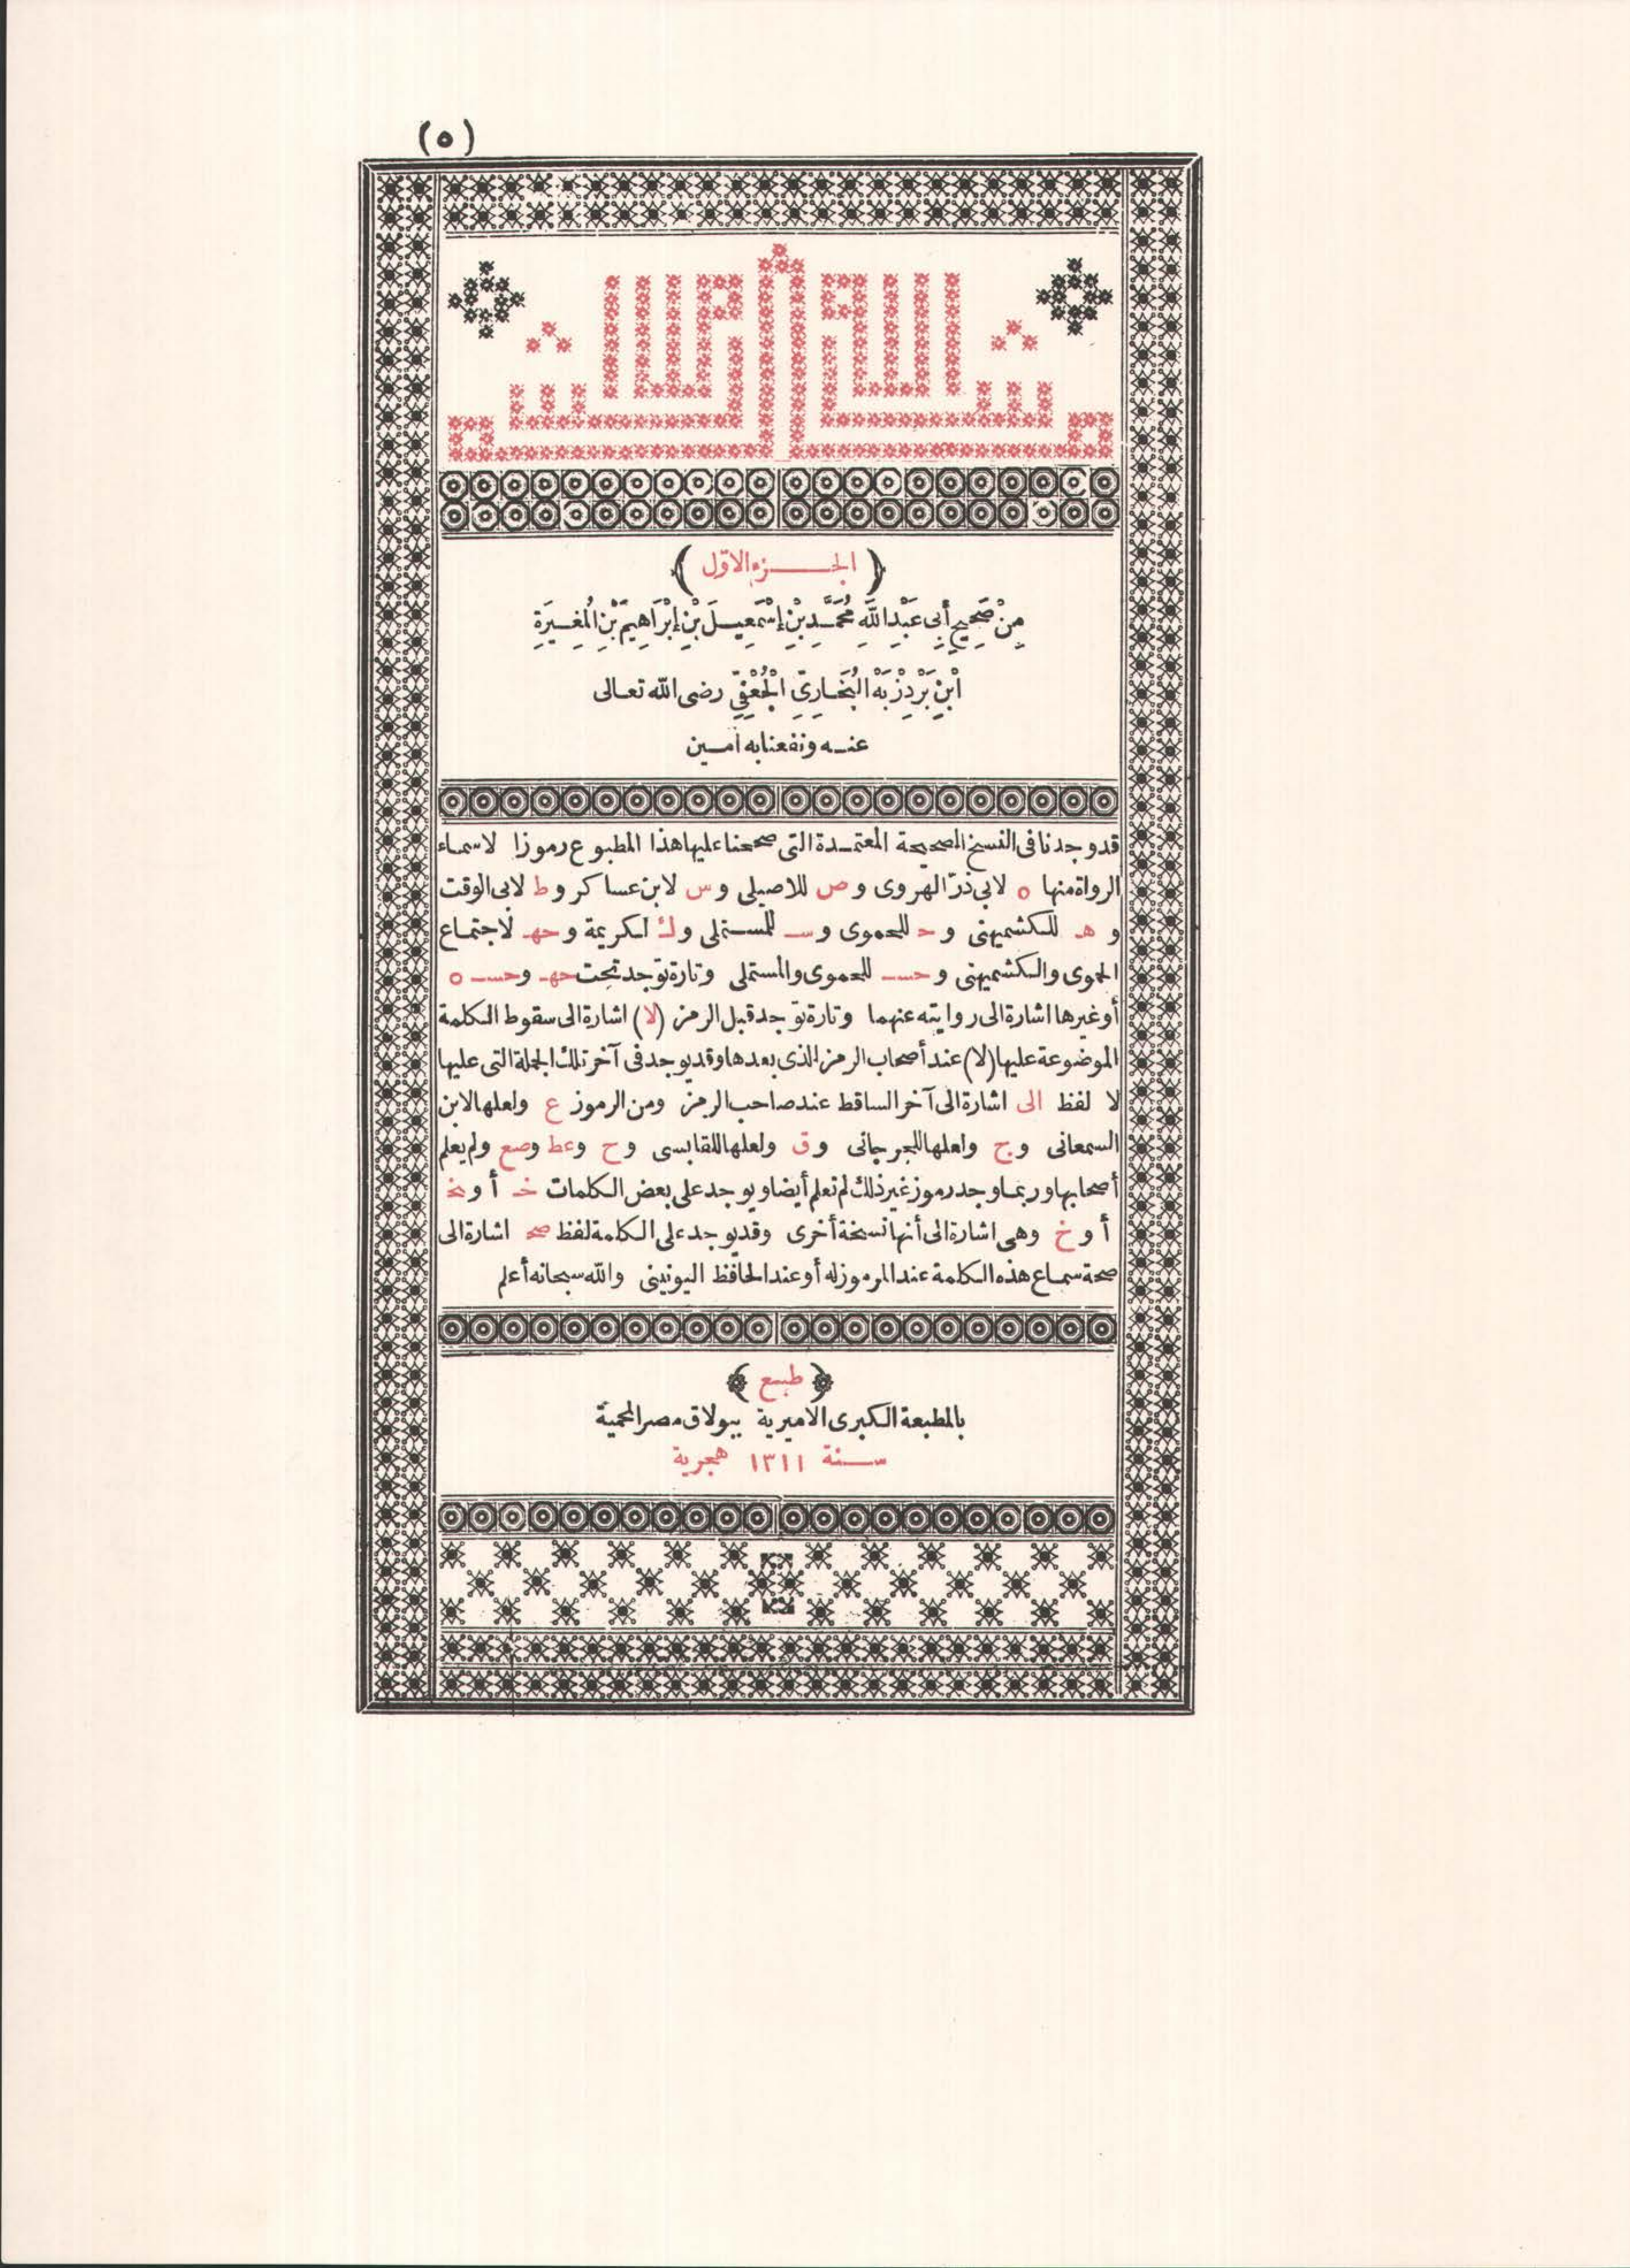 (٥)
(الجزء الاوّل)
مِنْ صَحِيحِ أَبِى عَبْدِاللَّهِ مُحَمَّدِ بْنِ إِسْمَعِيلَ بْنِ إِبْرَاهِيمَ بْنِ الْمُغِيرَةِ
ابْنِ بَرْدِزْبَهْ الْبُخَارِىِّ الْجُعْفِىِّ رضى الله تعالى
عنه ونفعنا به آمين
قد وجدنا فى النسخ الصحيحة المعتمدة التى صححنا عليها هذا المطبوع رموزا لاسماء
الرواة منها ه لابى ذرّ الهروى و ص للاصيلى و س لابن عساكر و ط لابى الوقت
و هـ للكشميهنى و حـ للحموى و سـ للمستملى و ك لكريمة و حهـ لاجتماع
الحموى والكشميهنى و حسـ للحموى والمستملى وتارة توجد تحت حهـ وحسـ ه
أو غيرها اشارة الى روايته عنهما وتارة توجد قبل الرمز (لا) اشارة الى سقوط الكلمة
الموضوعة عليها (لا) عند أصحاب الرمز الذى بعدها وقد يوجد فى آخر تلك الجملة التى عليها
لا لفظ الى اشارة الى آخر الساقط عند صاحب الرمز ومن الرموز ع ولعلها لابن
السمعانى و ج ولعلها للجرجانى و ق ولعلها للقابسى و ح وعط وصع ولم يعلم
أصحابها وربما وجد رموز غير ذلك لم تعلم أيضا ويوجد على بعض الكلمات خـ أو نخ
أو خ وهى اشارة الى أنها نسخة أخرى وقد يوجد على الكلمة لفظ صح اشارة الى
صحة سماع هذه الكلمة عند المرموز له أو عند الحافظ اليونينى والله سبحانه أعلم
﴿طبع﴾
بالمطبعة الكبرى الاميرية ببولاق مصر المحمية
سنة ١٣١١ هجرية